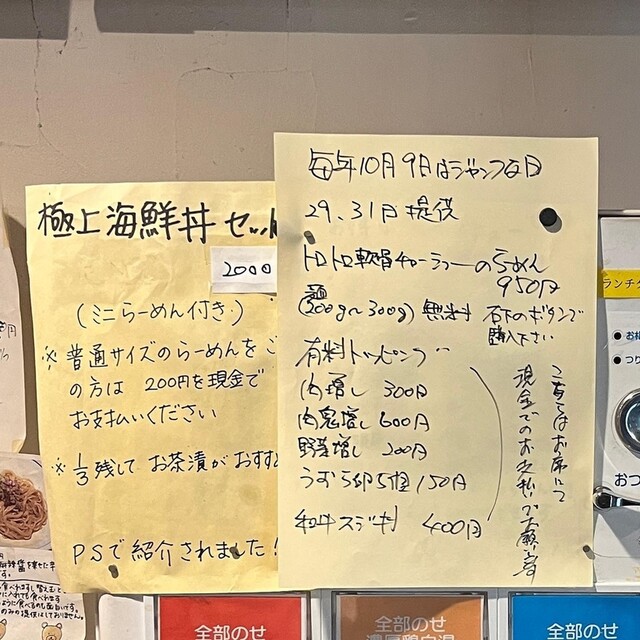 極上海鮮丼セット
2000
(ミニらーめん付き)
※普通サイズのらーめんをご
の方は 200円を現金で
お支払いください
※1/3残して お茶漬がおすす
PSで紹介されました!
毎年10月9日はジャンプな日
29、31日提供
トロトロ軟骨チャーシューのらーめん
950円
(200g〜300g) 無料
右下のボタンで
購入下さい
有料トッピング
肉増し 300円
肉鬼増し 600円
野菜増し 200円
うずら卵5個 150円
和牛スジ 400円
現金でのお支払い
ランチタ
おつ
全部のせ
全部のせ
濃厚鶏白湯
全部のせ